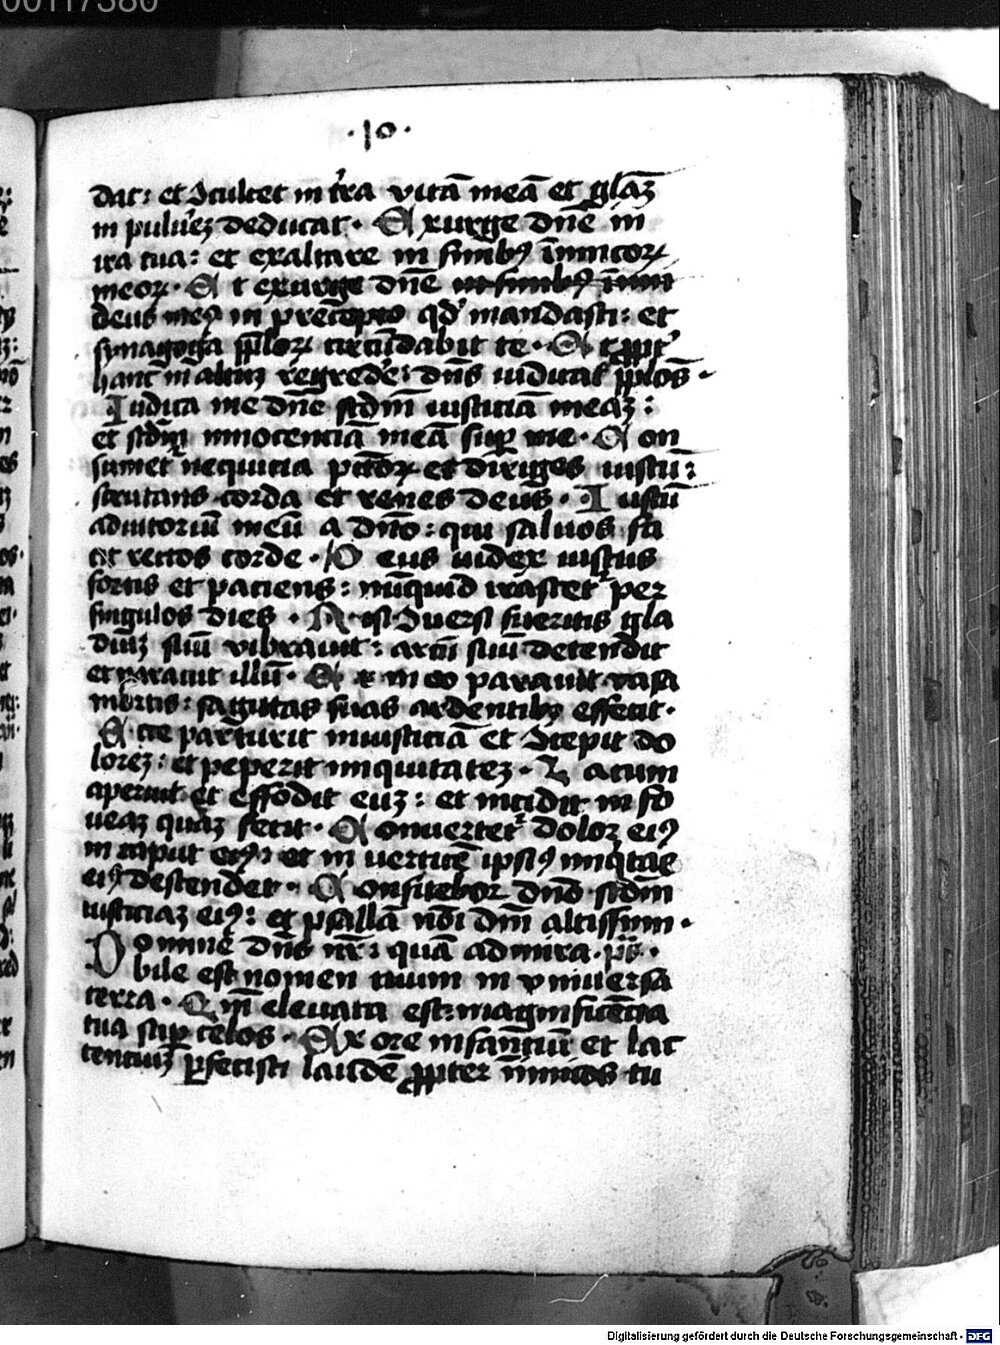 00117380
·10·
dat: et ɔculcet in t̄ra vitā meā et glāȝ
in puluēȝ deducat· Exurge dn̄e in
ira tua: et exaltare in finibꝰ inimicoꝝ
meoꝝ· Et exurge dn̄e in finibꝰ inim
deus meꝰ in precepto qd̓ mandasti: et
synagoga pp̄loꝝ circūdabit te· Et ꝓpt̓
hanc in altuȝ regrede: dn̄s iudicat pp̄los·
Iudica me dn̄e scd̄m iusticiā meaȝ:
et scd̄m innocenciā meā suꝑ me· Con
sumet̓ nequicia pctōꝝ et diriges iustū:
scrutans corda et renes deus· Iustū
adiutoriū meū a dn̄o: qui saluos fa
cit rectos corde· Deus iudex iustus
fortis et paciens: nūquid irascet̓ per
singulos dies· Nisi ɔuersi fueritis gla
diuȝ suū vibrauit: arcū suū detendit
et parauit illū· Et in eo parauit vasa
mortis: sagittas suas ardentibꝰ effecit·
Ecce parturit iniusticiā et ɔcepit do
loreȝ: et peperit iniquitateȝ· Lacum
aperuit et effodit euȝ: et incidit in fo
ueaȝ quāȝ fecit· Conuertet̓ dolor eiꝰ
in caput eiꝰ: et in verticē ipsiꝰ iniq̓tas
eiꝰ descendet· Confitebor dn̄o scd̄m
iusticiaȝ eiꝰ: et psallā nōi dn̄i altissimi·
Domine dn̄s nr̄: quā admira· ps̄·
bile est nomen tuum in vniuersa
terra· Qm̄ eleuata est magnificēcia
tua suꝑ celos· Ex ore infanciuȝ et lac
tenciuȝ ꝑfecisti laudē ꝓpter inimicos tu
Digitalisierung gefördert durch die Deutsche Forschungsgemeinschaft · DFG